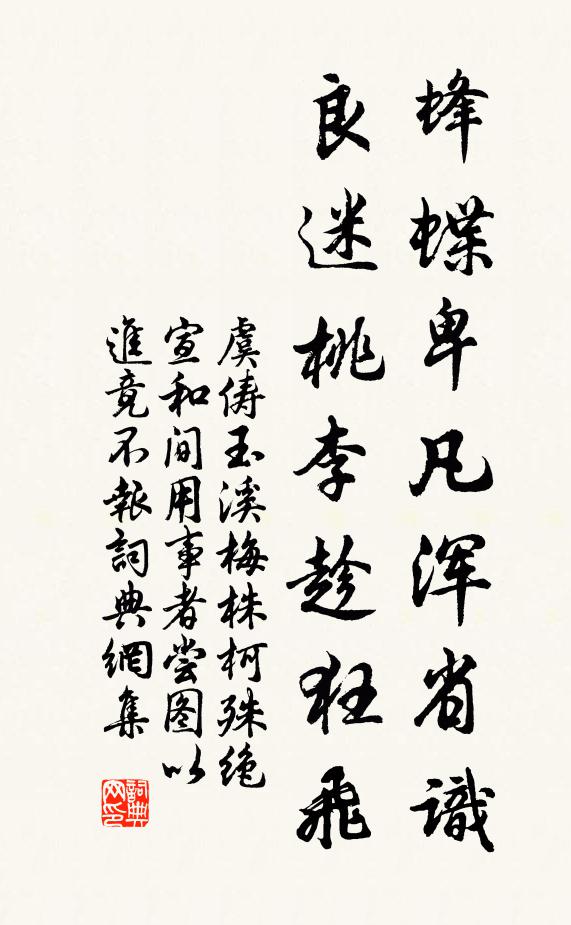 蜂蝶卑凡浑省識
良迷桃李趁狂飛
虞俦玉溪梅株柯殊绝
宣和间用事者尝图以
進竟不報詞典網集
詞典网印